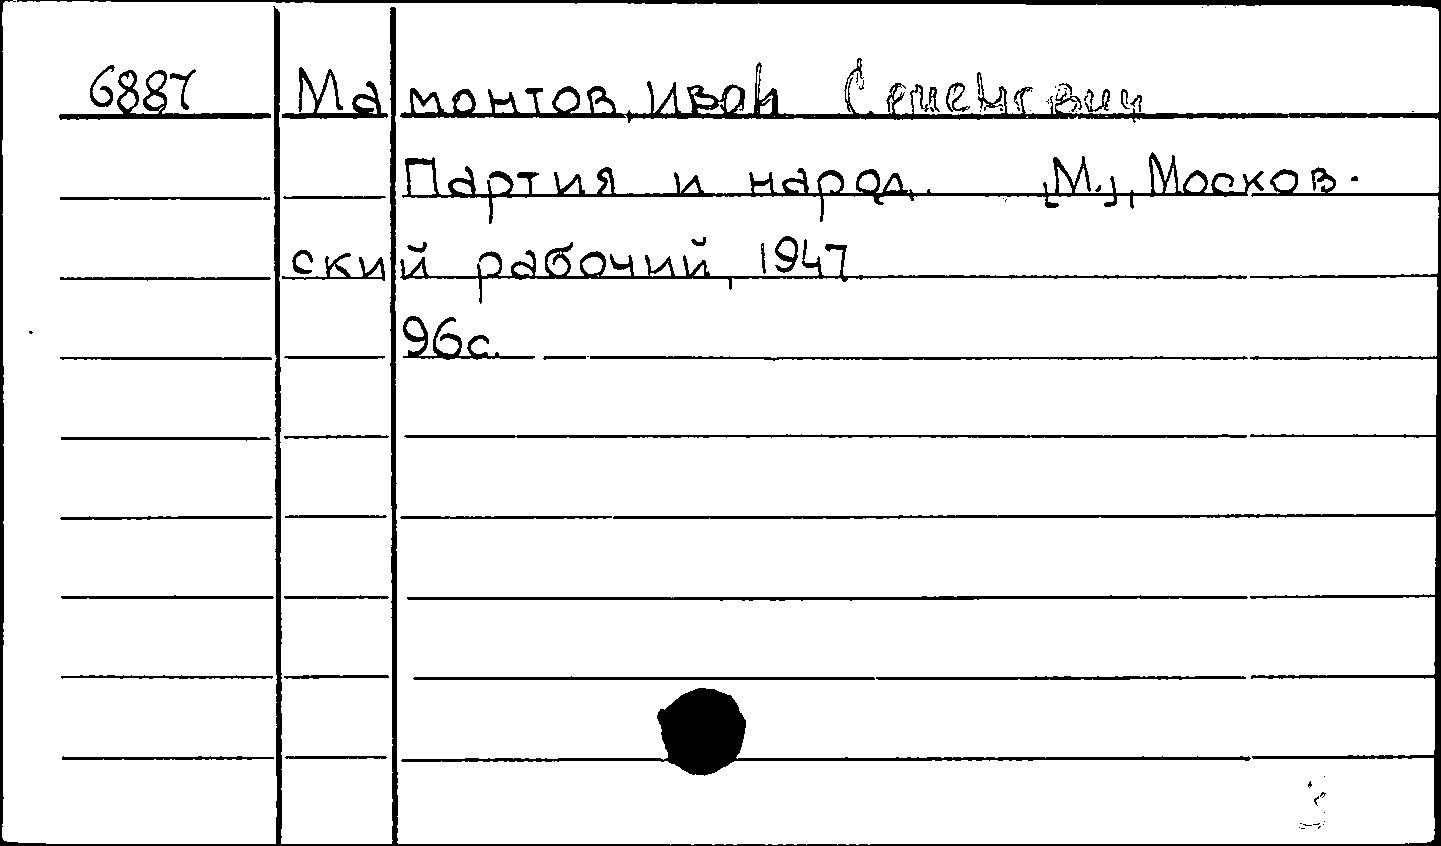 6887 Мамонтов, Иван Семенович
Партия и народ. [М.], Москов-
ский рабочий, 1947
96с.